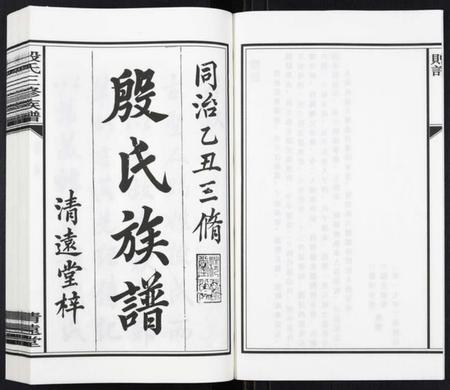 同治乙丑三脩
殷氏族譜
清遠堂梓
殷氏三修族譜
清遠堂